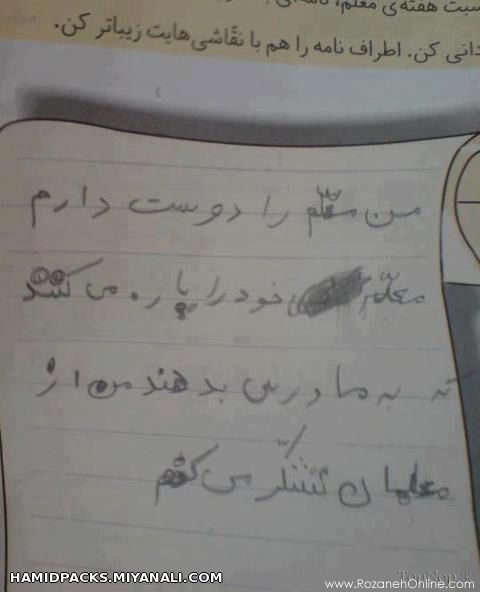 سبت هفته‌ی معلم، نامه‌ای
دانی کن. اطراف نامه را هم با نقاشی‌هایت زیباتر کن.
من معلّم را دوست دارم
معلّم خود را پاره می کنند
که به ما درس بدهند من از
معلمان تشکّر می کنم
HAMIDPACKS.MIYANALI.COM
www.RozanehOnline.com